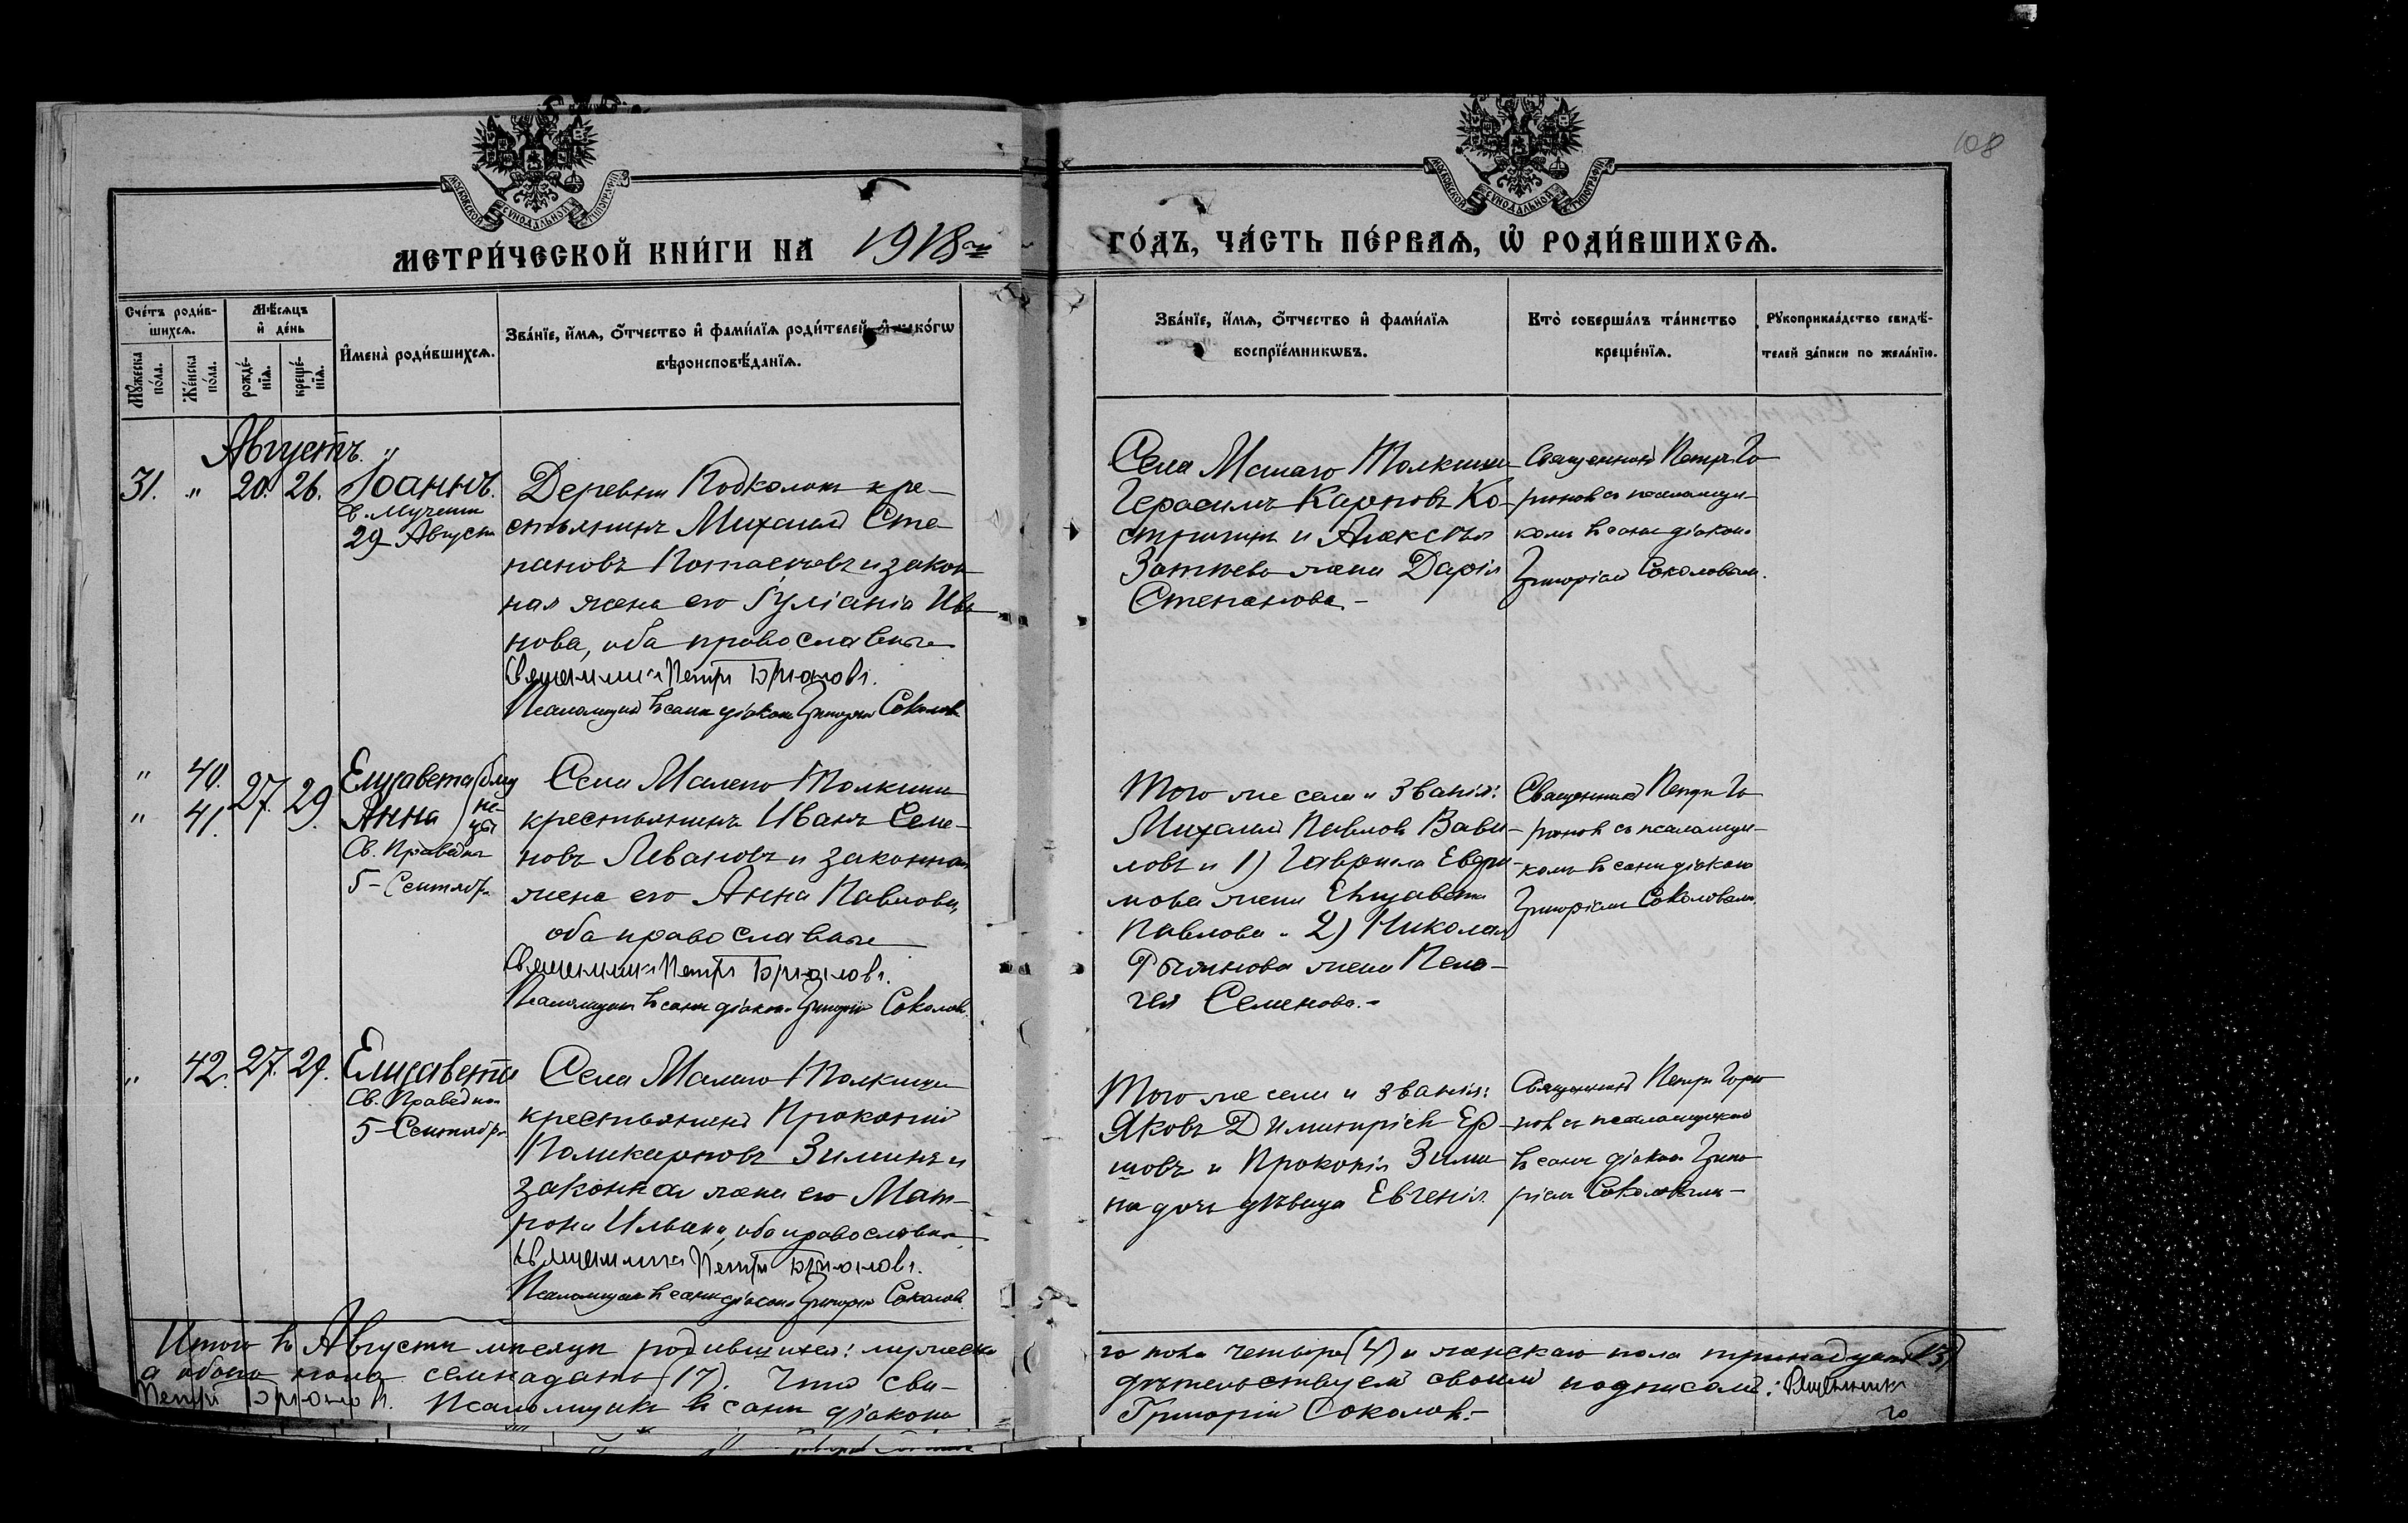 108
МОСКОВСКОЙ СУНОДАЛЬНОЙ ТИПОГРАФІИ
МОСКОВСКОЙ СУНОДАЛЬНОЙ ТИПОГРАФІИ
МЕТРИ́ЧЕСКОЙ КНИ́ГИ НА 1918 й
ГО́ДЪ, ЧА́СТЬ ПЕ́РВАѦ, Ѿ РОДИ́ВШИХСѦ.
Сче́тъ роди́в-
шихсѧ.
Мꙋ́жеска
по́ла.
Же́нска
по́ла.
Мѣ́сѧцъ
и҆ де́нь
рожде́-
нїѧ.
креще́-
нїѧ.
И҆мена̀ роди́вшихсѧ.
Зва́нїе, и҆́мѧ, ѻ҆́тчество и҆ фами́лїѧ роди́телей, и҆ како́гѡ
вѣроисповѣ́данїѧ.
Зва́нїе, и҆́мѧ, ѻ҆́тчество и҆ фами́лїѧ
воспрїе́мникѡвъ.
Кто̀ соверша́лъ та́инство
креще́нїѧ.
Рꙋкоприкла́дство свидѣ́-
телей за́писи по жела́нїю.
Августъ.
31. " 20. 26. Іоаннъ.
29 Августа
Деревни Подколки кре-
стьянинъ Михаилъ Сте-
пановъ Потаенковъ и закон
ная жена его Іуліанія Ива
нова, оба православные
Священникъ Петръ
Псаломщикъ въ санѣ діакона Григорій Соколовъ
Села Малаго Толкиша
Герасимъ Карповъ Ко-
стригинъ и Алексѣя
жена Дарія
Степанова.-
Священникъ Петръ Го
съ псаломщи-
комъ въ санѣ діакона
Григоріемъ Соколовымъ.
" 40. 27. 29. Елизавета
" 41. Анна
близнецы
Св. Праведн
5 - Сентябр.
Села Малаго Толкиша
крестьянинъ Иванъ Семе-
новъ Левановъ и законная
жена его Анна Павлова,
оба православные
Священникъ Петръ
Псаломщикъ въ санѣ діакона Григорій Соколовъ.
Того же села и званія:
Михаилъ Павловъ Вави-
ловъ и 1) Гавриила Ефри-
мова жена Елизавета
Павлова. 2) Николая
жена Пела-
гея Семенова.-
Священникъ Петръ Го
съ псаломщи-
комъ въ санѣ діакона
Григоріемъ Соколовымъ.
" 42. 27. 29. Елизавета
Св. Праведная
5 - Сентябр.
Села Малаго Толкиша
крестьянинъ Прокопій
Поликарповъ Зиминъ и
законная жена его Мат-
рона Ильина, оба православные
Священникъ Петръ
Псаломщикъ въ санѣ діакона Григорій Соколовъ.
Того же села и званія:
Яковъ Димитріевъ Ер-
шовъ и Прокопія Зими
на дочь дѣвица Евгенія
Священникъ Петръ
съ псаломщикомъ
въ санѣ діакона Григо
ріемъ Соколовымъ-
Итого въ Августѣ мѣсяцѣ родившихся: мужеска
го пола четыре (4) и женскаго пола тринадцать (13)
а обоего пола семнадцать (17). Что сви-
дѣтельствуемъ своимъ подписомъ: Священникъ
Петръ Псаломщикъ въ санѣ діакона
Григорій Соколовъ.-